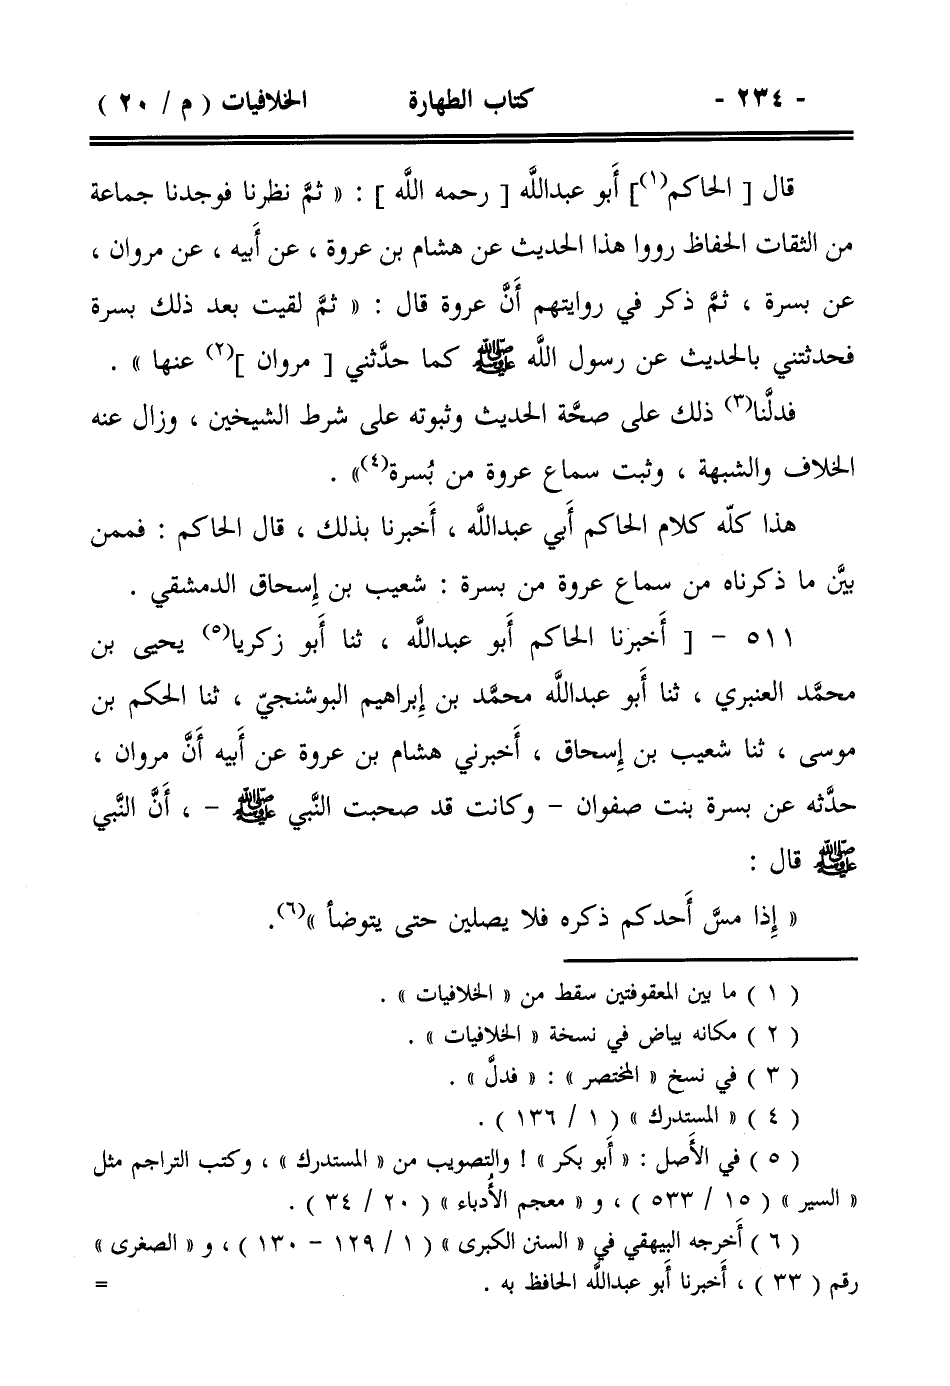 - ٢٣٤ - كتاب الطهارة الخلافيات ( م / ٢٠ )
قال [ الحاكم(١)] أَبو عبداللَّه [ رحمه اللَّه ] : « ثمَّ نظرنا فوجدنا جماعة
من الثقات الحفاظ رووا هذا الحديث عن هشام بن عروة ، عن أَبيه ، عن مروان ،
عن بسرة ، ثمَّ ذكر في روايتهم أَنَّ عروة قال : « ثمَّ لقيت بعد ذلك بسرة
فحدثتني بالحديث عن رسول اللَّه ﷺ كما حدَّثني [ مروان ](٢) عنها » .
فدلَّنا(٣) ذلك على صحَّة الحديث وثبوته على شرط الشيخين ، وزال عنه
الخلاف والشبهة ، وثبت سماع عروة من بُسرة(٤)» .
هذا كلّه كلام الحاكم أَبي عبداللَّه ، أَخبرنا بذلك ، قال الحاكم : فممن
بيَّن ما ذكرناه من سماع عروة من بسرة : شعيب بن إِسحاق الدمشقي .
٥١١ - [ أَخبرنا الحاكم أَبو عبداللَّه ، ثنا أَبو زكريا(٥) يحيى بن
محمَّد العنبري ، ثنا أَبو عبداللَّه محمَّد بن إِبراهيم البوشنجيّ ، ثنا الحكم بن
موسى ، ثنا شعيب بن إِسحاق ، أَخبرني هشام بن عروة عن أَبيه أَنَّ مروان ،
حدَّثه عن بسرة بنت صفوان - وكانت قد صحبت النَّبي ﷺ - ، أَنَّ النَّبي
ﷺ قال :
« إِذا مسَّ أَحدكم ذكره فلا يصلين حتى يتوضأ »(٦).
( ١ ) ما بين المعقوفتين سقط من « الخلافيات » .
( ٢ ) مكانه بياض في نسخة « الخلافيات » .
( ٣ ) في نسخ « المختصر » : « فدلَّ » .
( ٤ ) « المستدرك » ( ١ / ١٣٦ ) .
( ٥ ) في الأَصل : « أَبو بكر » ! والتصويب من « المستدرك » ، وكتب التراجم مثل
« السير » ( ١٥ / ٥٣٣ ) ، و « معجم الأُدباء » ( ٢٠ / ٣٤ ) .
( ٦ ) أَخرجه البيهقي في « السنن الكبرى » ( ١ / ١٢٩ - ١٣٠ ) ، و « الصغرى »
رقم ( ٣٣ ) ، أَخبرنا أَبو عبداللَّه الحافظ به . =